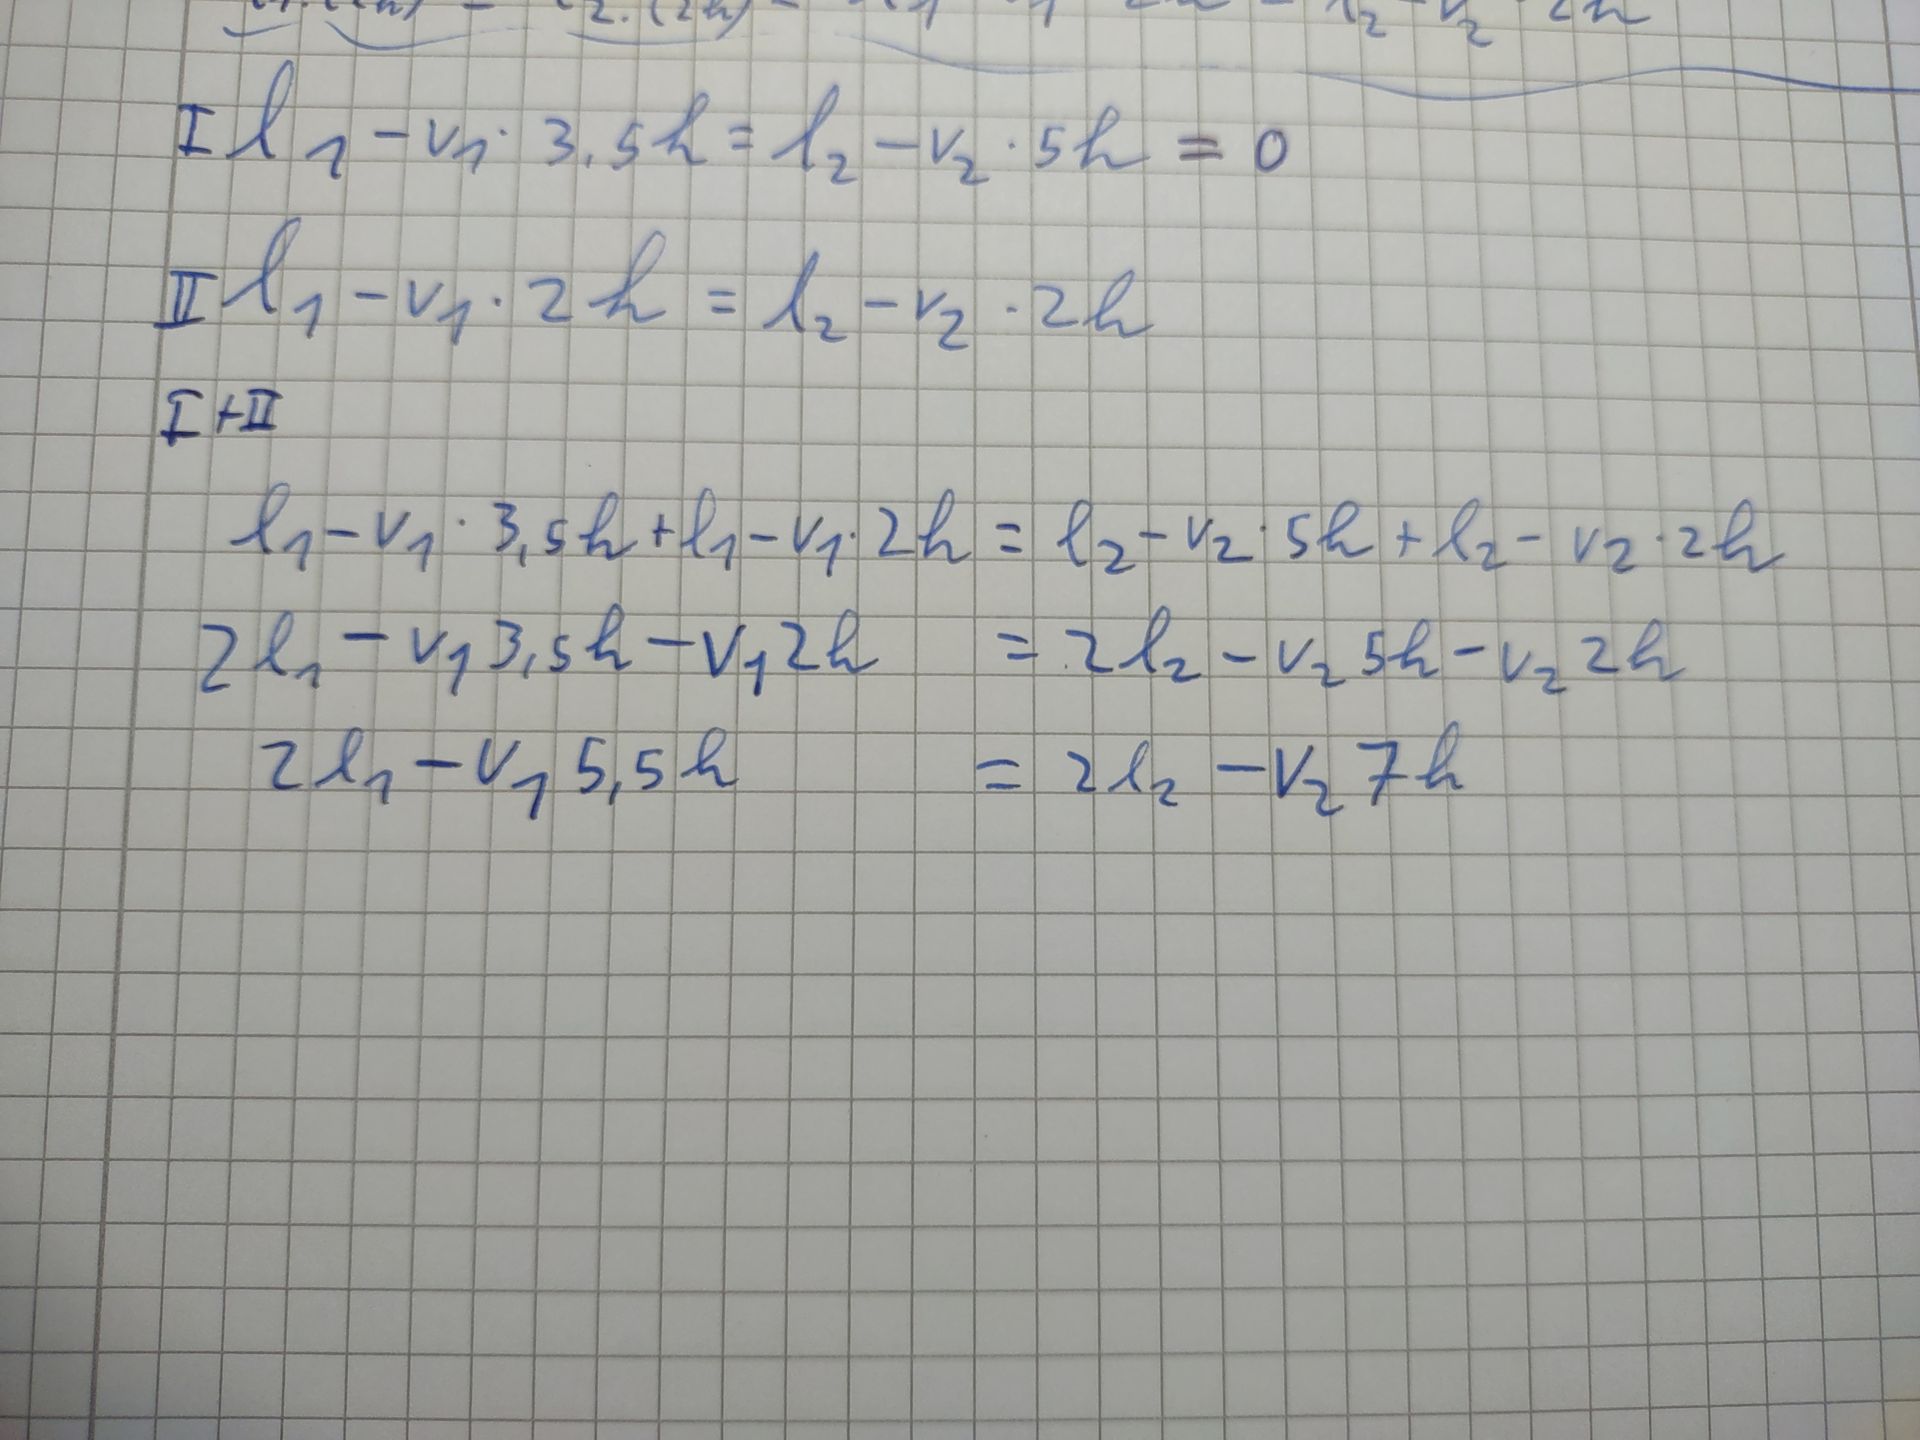 l₂.(2h) - l₂ - v₂ · 2h
I l₁ - v₁ · 3,5h = l₂ - v₂ · 5h = 0
II l₁ - v₁ · 2h = l₂ - v₂ · 2h
I + II
l₁ - v₁ · 3,5h + l₁ - v₁ · 2h = l₂ - v₂ · 5h + l₂ - v₂ · 2h
2l₁ - v₁ 3,5h - v₁ 2h = 2l₂ - v₂ 5h - v₂ 2h
2l₁ - v₁ 5,5h = 2l₂ - v₂ 7h